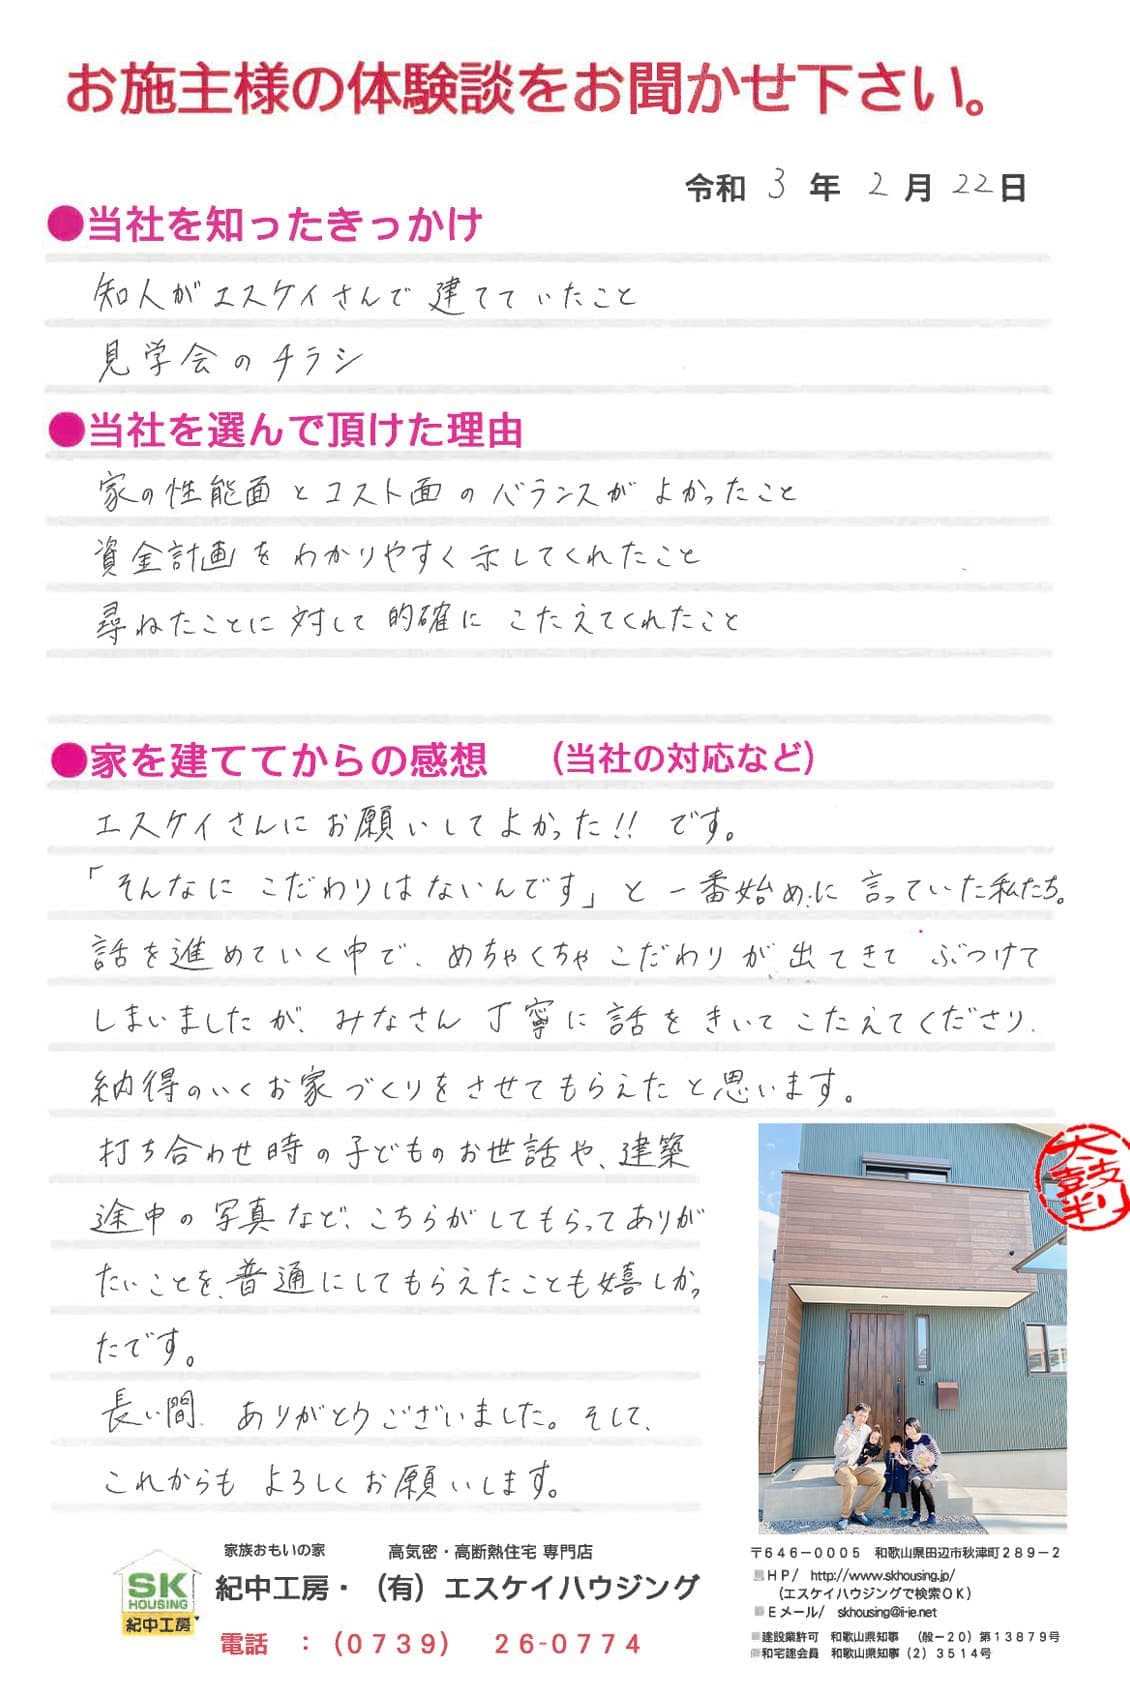 お施主様の体験談をお聞かせ下さい。
令和 3 年 2 月 22日
●当社を知ったきっかけ
知人がエスケイさんで建てていたこと
見学会のチラシ
●当社を選んで頂けた理由
家の性能面とコスト面のバランスがよかったこと
資金計画をわかりやすく示してくれたこと
尋ねたことに対して的確にこたえてくれたこと
●家を建ててからの感想 （当社の対応など）
エスケイさんにお願いしてよかった!! です。
「そんなにこだわりはないんです」と一番始めに言っていた私たち。
話を進めていく中で、めちゃくちゃこだわりが出てきてぶつけて
しまいましたが、みなさん丁寧に話をきいてこたえてくださり、
納得のいくお家づくりをさせてもらえたと思います。
打ち合わせ時の子どものお世話や、建築
途中の写真など、こちらがしてもらってありが
たいことを、普通にしてもらえたことも嬉しかっ
たです。
長い間、ありがとうございました。そして、
これからもよろしくお願いします。
太鼓判
家族おもいの家 高気密・高断熱住宅 専門店
SK
HOUSING
紀中工房
紀中工房・（有）エスケイハウジング
電話 ：（0739） 26-0774
〒646－0005 和歌山県田辺市秋津町289－2
HP/ http://www.skhousing.jp/
（エスケイハウジングで検索OK）
Eメール/ skhousing@i-ie.net
建設業許可 和歌山県知事 （般－20）第13879号
和宅建会員 和歌山県知事（2）3514号